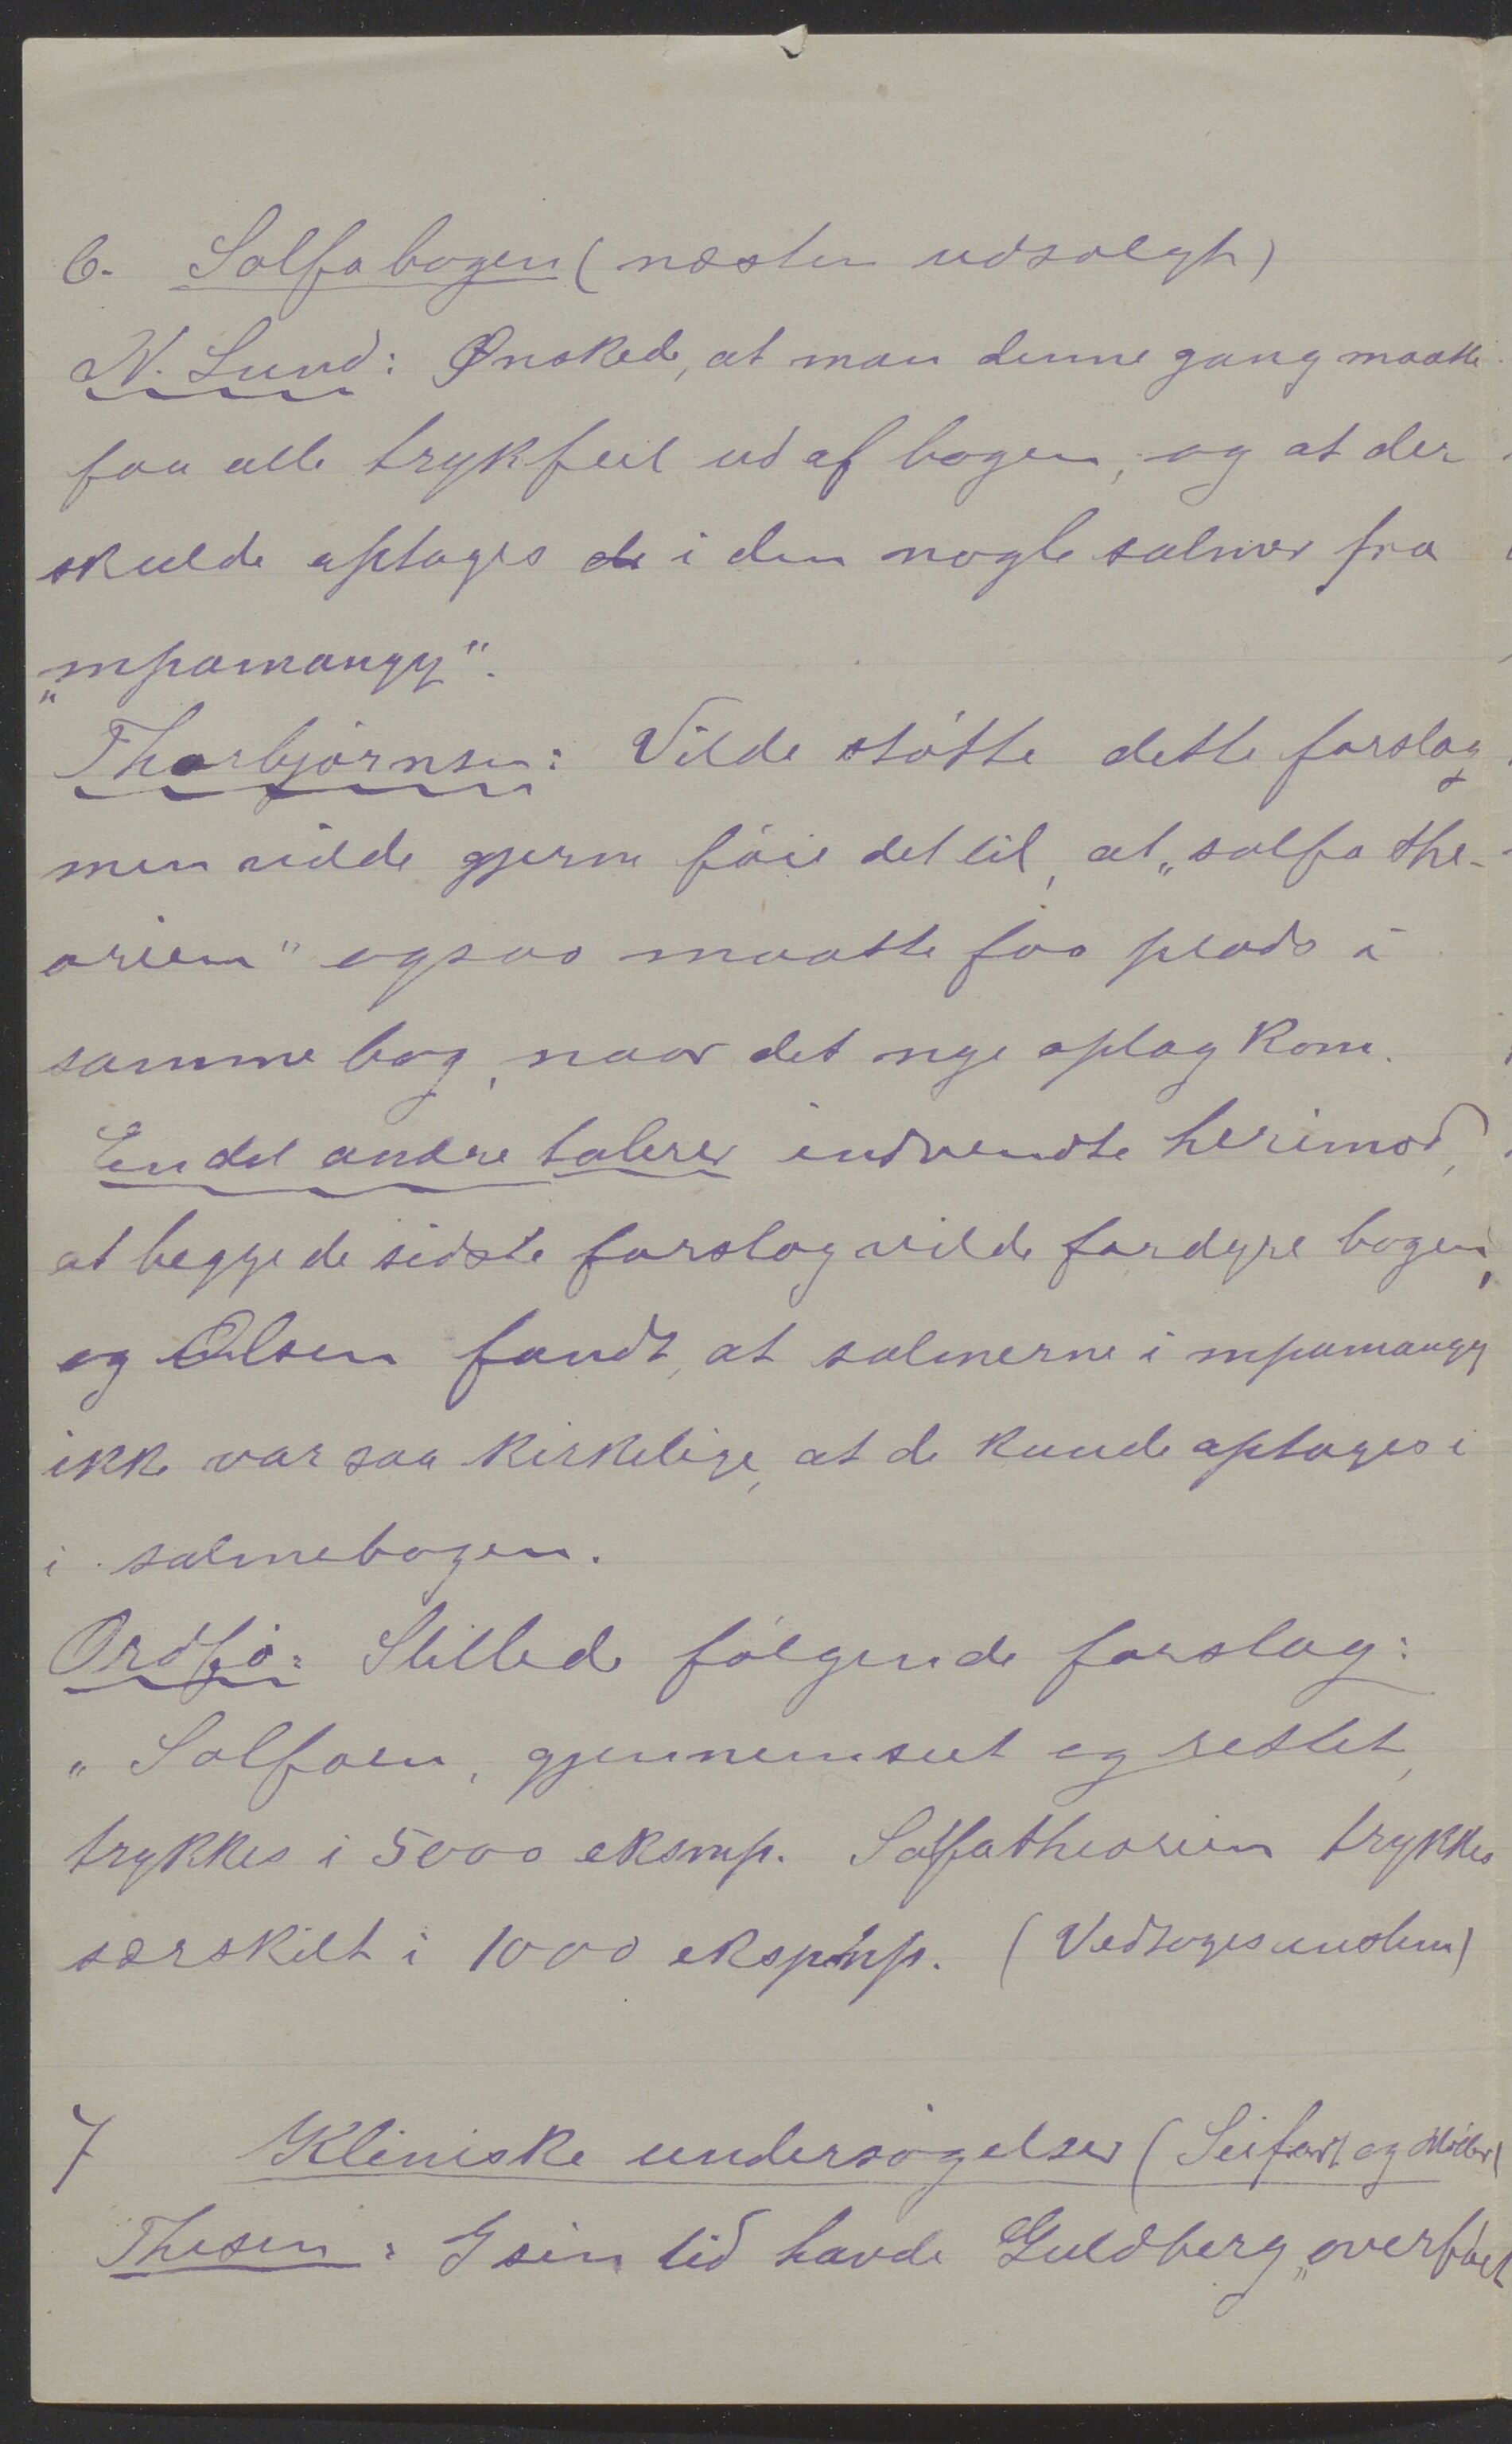 6. Solfabogen (næsten udsolgt)
N. Lund: Ønskede, at man denne gang maatte
faa alle trykfeil ud af bogen, og at der
skulde optages de i den nogle salmer fra
„mpamangy".
Thorbjørnsen: Vilde støtte dette forslag
men vilde gjerne føie det til, at „solfa the-
orien" ogsaa maatte faa plads i
samme bog, naar det nye oplag kom.
Endel andre talere indvendte herimod,
at begge de sidste forslag vilde fordyre bogen,
og Olsen fandt, at salmerne i mpamangy
ikke var saa kirkelige, at de kunde optages i
i salmebogen.
Ordfø: Stillede følgende forslag:
„Solfaen, gjennemseet og rettet,
trykkes i 5000 eksmp. Solfatheorien trykkes
særskilt i 1000 ekspmp. (Vedtoges enstem)
7 Kliniske undersøgelser (Seifart og Møller)
Thesen: I sin tid havde Guldberg „overført